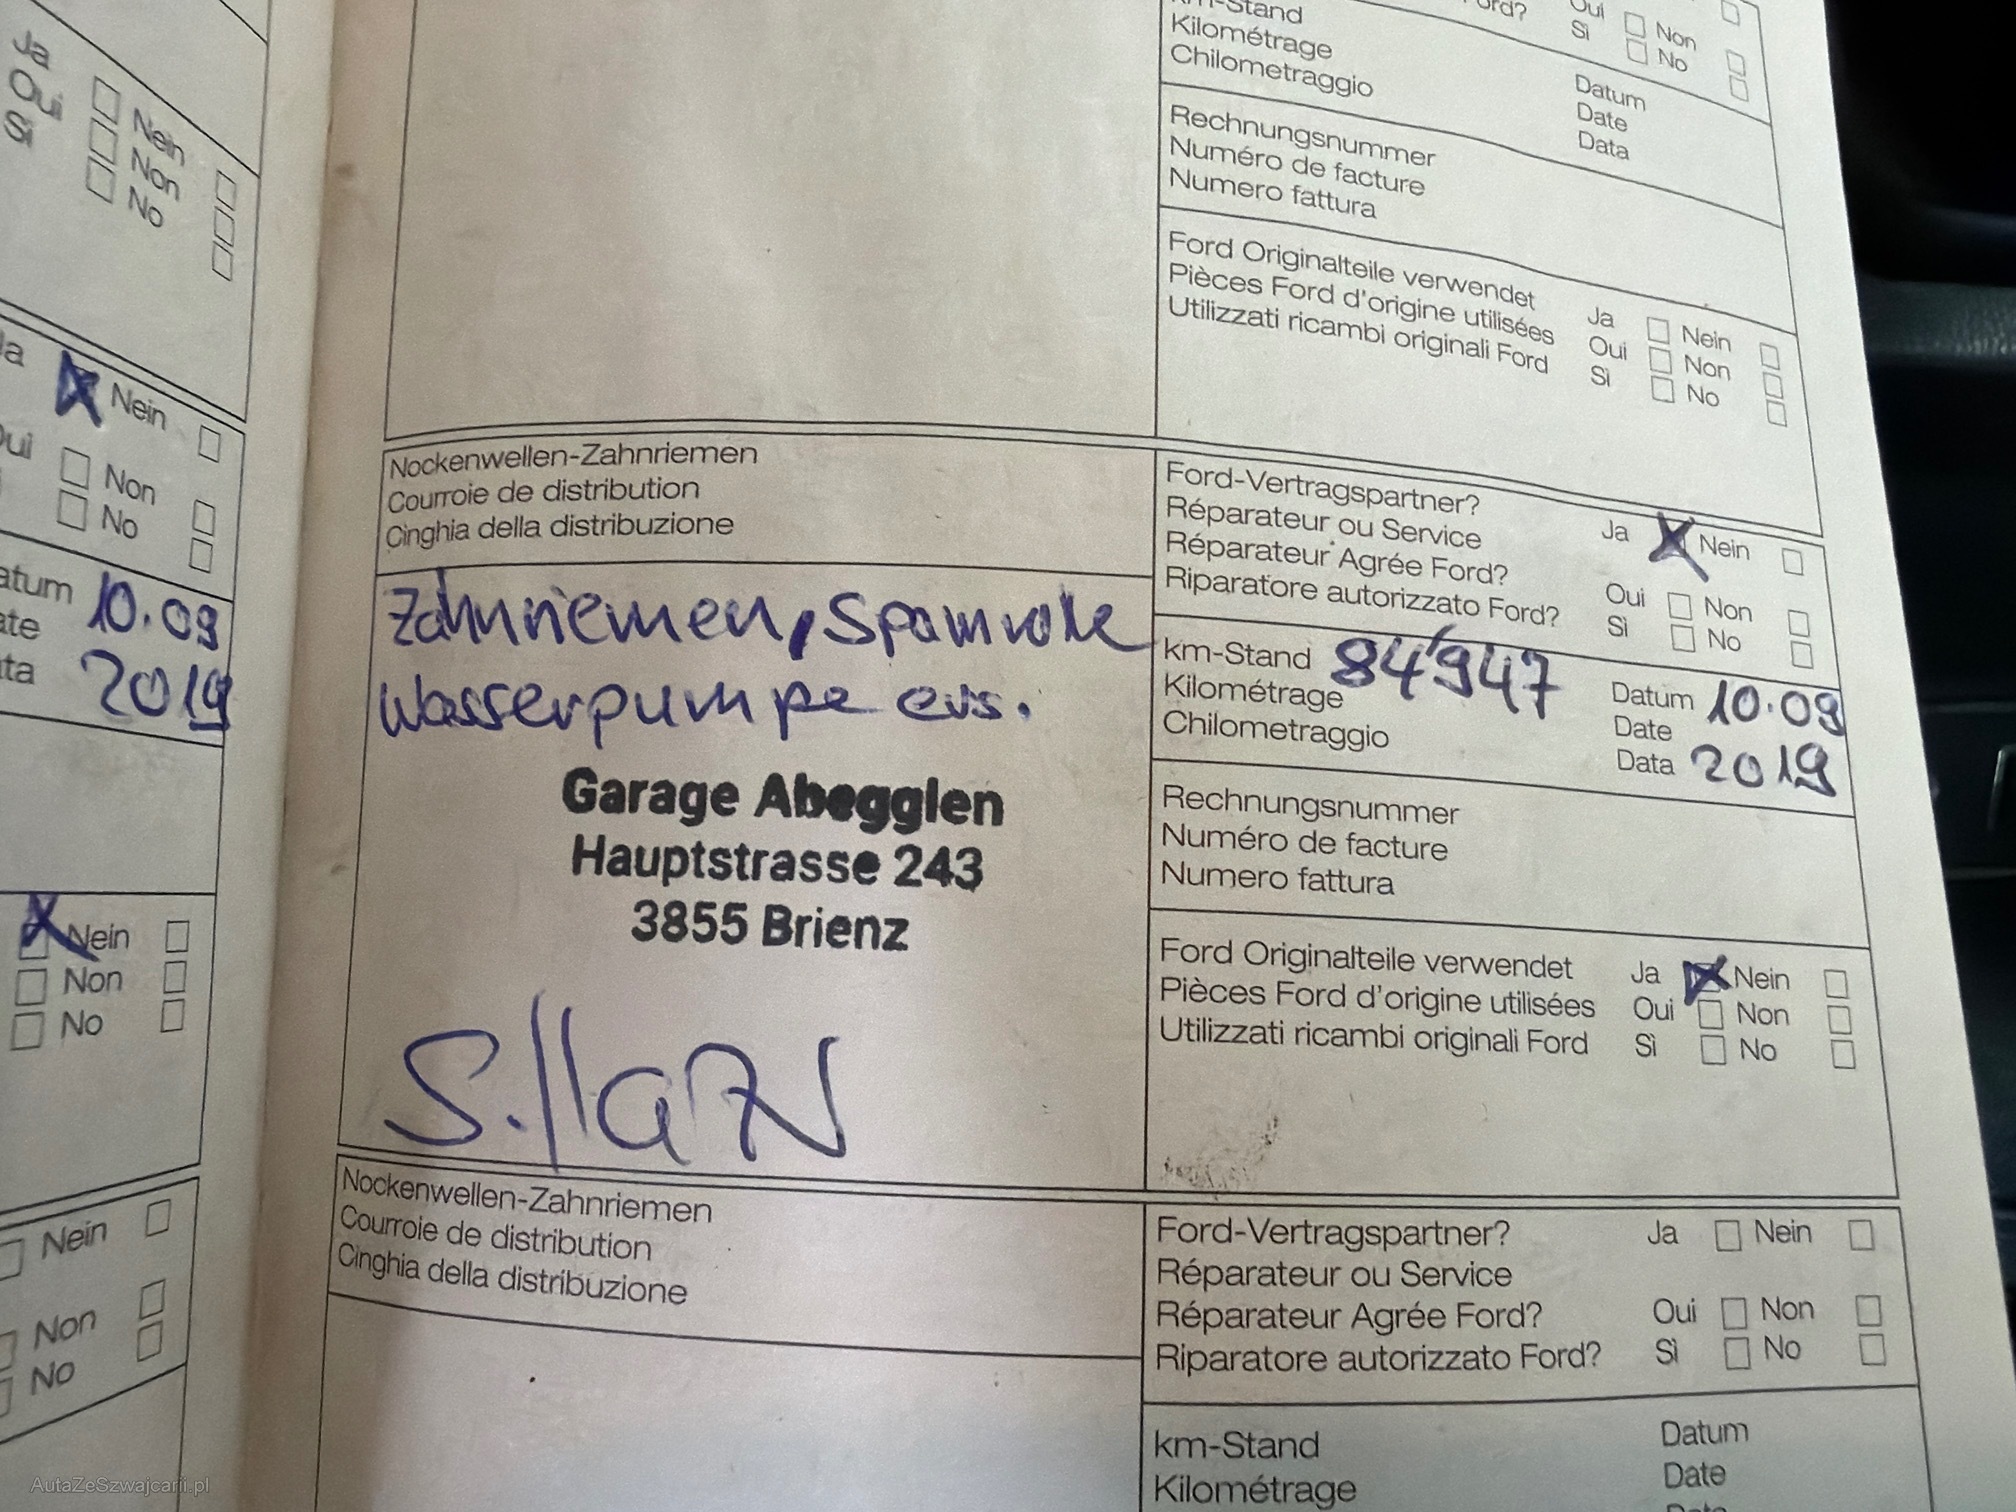 Ja
Oui
Si
Nein
Non
No
Nein
Non
No
10.09
2019
Nein
Non
No
Nein
Non
No
km-Stand
Kilométrage
Chilometraggio
Oui
Non
Si
No
Datum
Date
Data
Rechnungsnummer
Numéro de facture
Numero fattura
Ford Originalteile verwendet
Pièces Ford d'origine utilisées
Utilizzati ricambi originali Ford
Ja Nein
Oui Non
Si No
Nockenwellen-Zahnriemen
Courroie de distribution
Cinghia della distribuzione
Zahnriemen, Spannrolle
Wasserpumpe ers.
Garage Abegglen
Hauptstrasse 243
3855 Brienz
Ford-Vertragspartner?
Réparateur ou Service
Réparateur Agrée Ford?
Riparatore autorizzato Ford?
Ja Nein
Oui Non
Si No
km-Stand 84'947
Kilométrage
Chilometraggio
Datum 10.09
Date
Data 2019
Rechnungsnummer
Numéro de facture
Numero fattura
Ford Originalteile verwendet Ja Nein
Pièces Ford d'origine utilisées Oui Non
Utilizzati ricambi originali Ford Sì No
Nockenwellen-Zahnriemen
Courroie de distribution
Cinghia della distribuzione
Ford-Vertragspartner? Ja Nein
Réparateur ou Service
Réparateur Agrée Ford? Oui Non
Riparatore autorizzato Ford? Sì No
km-Stand Datum
Kilométrage Date
AutaZeSzwajcarii.pl